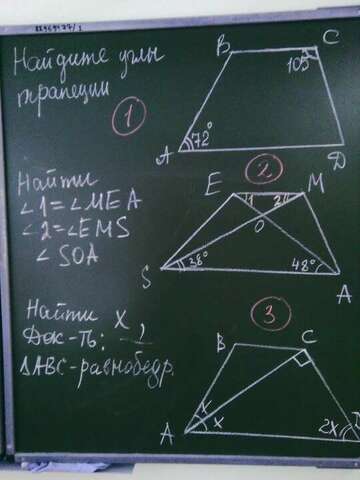 Найдите углы
трапеции
1
B
C
105
72°
A
D
Найти
∠1=∠MEA
∠2=∠EMS
∠SOA
2
E
M
1
2
O
38°
48°
S
A
Найти x,
Док-ть:
ΔABC-равнобедр.
3
B
C
x
x
2x
A
D